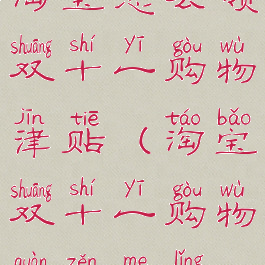 shuāng shí yī gòu wù
双十一购物
jīn tiē táo bǎo
津贴（淘宝
shuāng shí yī gòu wù
双十一购物
quàn zěn me lǐng